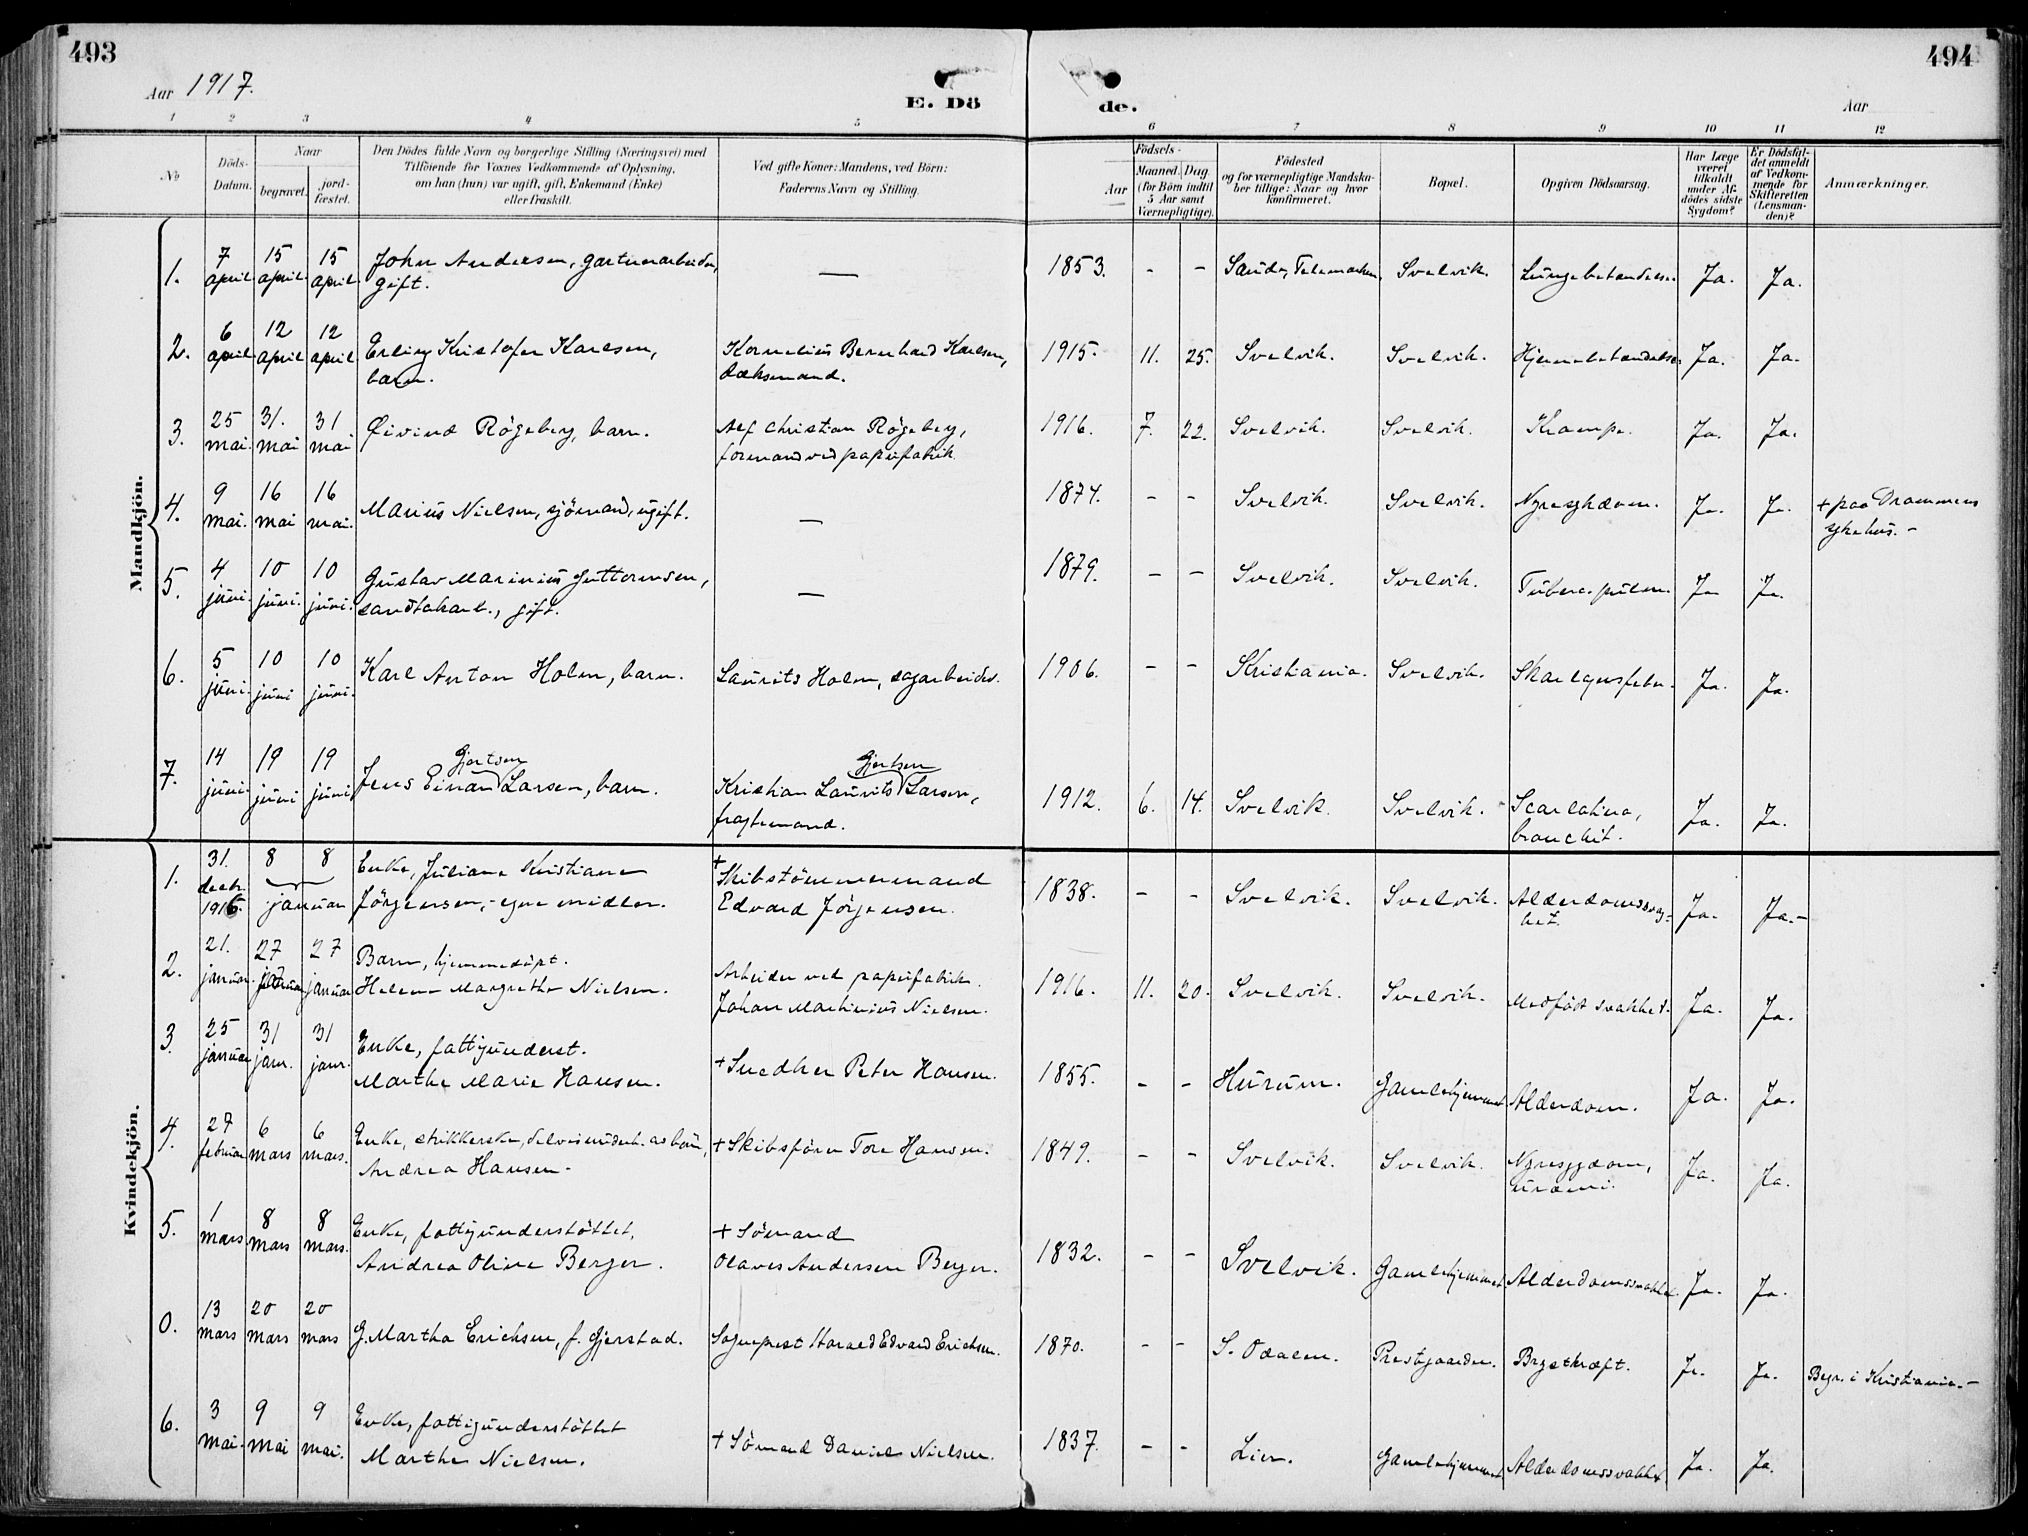 493
494
Aar 1917.
E. Dö
de.
Aar
1 2 3 4 5 6 7 8 9 10 11 12
No
Döds-
Datum.
Naar
begravet.
jord-
fæstet.
Den Dödes fulde Navn og borgerlige Stilling (Næringsvei) med
Tilföiende for Voxnes Vedkommende af Oplysning,
om han (hun) var ugift, gift, Enkemand (Enke)
eller fraskilt.
Ved gifte Koner: Mandens, ved Börn:
Faderens Navn og Stilling.
Födsels-
Aar
Maaned. Dag
(for Börn indtil
5 Aar samt
Værnepligtige).
Födested
og for værnepligtige Mandska-
ber tillige: Naar og hvor
konfirmeret.
Bopæl.
Opgiven Dödsaarsag.
Har Læge
været
tilkaldt
under Af-
dödes sidste
Sygdom?
Er Dödsfal-
det anmeldt
af Vedkom-
mende for
Skifteretten
(Lensman-
den)?
Anmærkninger.
Mandkjön.
1. 7 april 15 april 15 april John Andersen, gartnerarbeider, — 1853. - - Saude, Telemarken. Svelvik. Lungebetændelse. Ja. Ja.
gift.
2. 6 april 12 april 12 april Erling Kristofer Karlsen, Kornelius Bernhard Karlsen, 1915. 11. 25. Svelvik. Svelvik. Hjernebetændelse. Ja. Ja.
barn. dæksmand.
3. 25 mai. 31. mai 31 mai Øivind Rögeberg, barn. Alf Christian Rögeberg, 1916. 7. 22. Svelvik. Svelvik. Krampe. Ja. Ja.
formand ved papirfabrik.
4. 9 mai. 16 mai 16 mai. Marius Nielsen, sjömand, ugift. — 1874. - - Svelvik. Svelvik. Nyresykdom. Ja. Ja. + paa Drammens
sykehus. -
5. 4 juni. 10 juni. 10 juni. Gustav Marinius Guttormsen, — 1879. - - Svelvik. Svelvik. Tuberc. pulm. Ja Ja.
sandtakarb., gift.
6. 5 juni. 10 juni 10 juni. Karl Anton Holm, barn. Laurits Holm, sagarbeider. 1906. - - Kristiania. Svelvik. Skarlagensfeber. Ja. Ja.
Gjertsen Gjertsen
7. 14 juni. 19 juni 19 juni Jens Einar Larsen, barn. Kristian Laurits Larsen, 1912. 6. 14. Svelvik. Svelvik. Scarlatina, Ja. Ja.
fragtemand. bronchit.
Kvindekjön.
1. 31. decbr. 1916 8 8 januar Enke, Juliane Kristiane + Skibstömmermand 1838. - - Svelvik. Svelvik. Alderdomssvag- Ja. Ja.-
Jörgensen, - egne midler. Edvard Jörgensen. het.
2. 21. januar. 27 januar 27 januar Barn, hjemmedöpt. Arbeider ved papirfabrik. 1916. 11. 20. Svelvik. Svelvik. Medfödt svakhet. Ja. Ja.
Helene Margrethe Nielsen. Johan Martinius Nielsen.
3. 25 januar 31 janr. 31 janr. Enke, fattigunderst. + Snedker Peter Hansen. 1855. - - Hurum. Gamlehjemmet Alderdom. Ja. Ja.
Marthe Marie Hansen.
4. 27 februar 6 mars 6 mars. Enke, strikkerske, delvis underh. av barn, + Skibsförer Tore Hansen. 1849. - - Svelvik. Svelvik. Nyresygdom, Ja. Ja.
Andrea Hansen. urämi.
5. 1 mars. 8 mars 8 mars. Enke, fattigunderstöttet, + Sömand 1832. - - Svelvik. Gamlehjemmet Alderdomssvakhet Ja. Ja.
Andrea Oline Berger. Olaves Andersen Berger.
0. 13 mars 20 mars 20 mars G. Martha Erichsen, f. Gjerstad. Sogneprest Harald Edvard Erichsen. 1870. - - S. Odalen. Prestgaarden. Brystkræft. Ja. Ja. Begr. i Kristiania. -
6. 3 mai. 9 mai 9 mai. Enke, fattigunderstöttet + Sömand Daniel Nielsen. 1837. - - Lier. Gamlehjemmet Alderdomssvakhet Ja. Ja.
Marthe Nielsen.